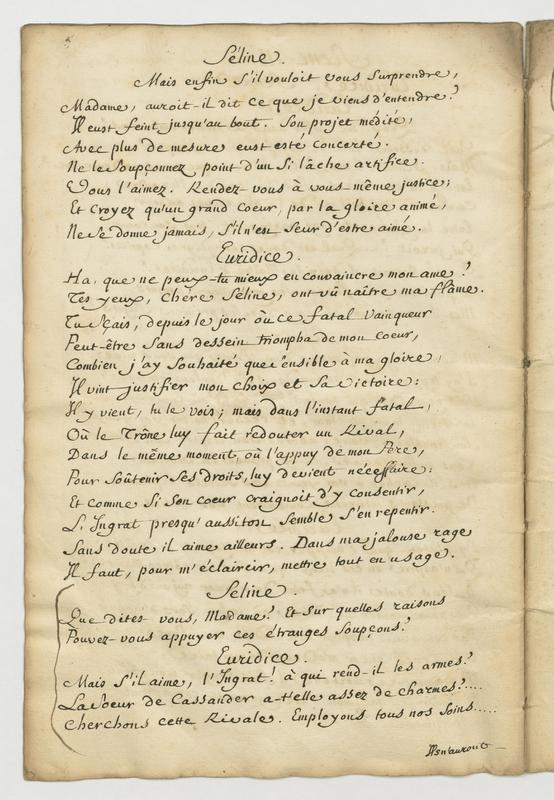 Séline.
Mais enfin s'il vouloit vous surprendre,
Madame, auroit-il dit ce que je viens d'entendre?
Il eust feint jusqu'au bout. Son projet médité,
Avec plus de mesure eust esté concerté.
Ne le soupçonnez point d'un si lâche artifice.
Vous l'aimez. Rendez-vous à vous-même justice;
Et croyez qu'un grand coeur, par la gloire animé,
Ne se donne jamais, s'il n'est seur d'estre aimé.
Euridice.
Ha, que ne peux-tu mieux en convaincre mon ame?
Tes yeux, chère Séline, ont vû naître ma flâme.
Tu sçais, depuis le jour où ce fatal vainqueur
Peut-être sans dessein triompha de mon coeur,
Combien j'ay souhaité que sensible à ma gloire,
Il vint justifier mon choix et sa victoire:
Il y vient, tu le vois; mais dans l'instant fatal,
Où le Trône luy fait redouter un Rival,
Dans le même moment, où l'appuy de mon Père,
Pour soûtenir ses droits, luy devient nécessaire:
Et comme si son coeur craignoit d'y consentir,
L'Ingrat presqu'aussitost semble s'en repentir.
Sans doute il aime ailleurs. Dans ma jalouse rage
Il faut, pour m'éclaircir, mettre tout en usage.
Séline.
Que dites-vous, Madame? Et sur quelles raisons
Pouvez-vous appuyer ces étranges soupçons?
Euridice.
Mais s'il aime, l'Ingrat! à qui rend-il les armes?
La soeur de Cassander a-t'elle assez de charmes?....
Cherchons cette Rivale. Employons tous nos soins.....
Ils n'auront